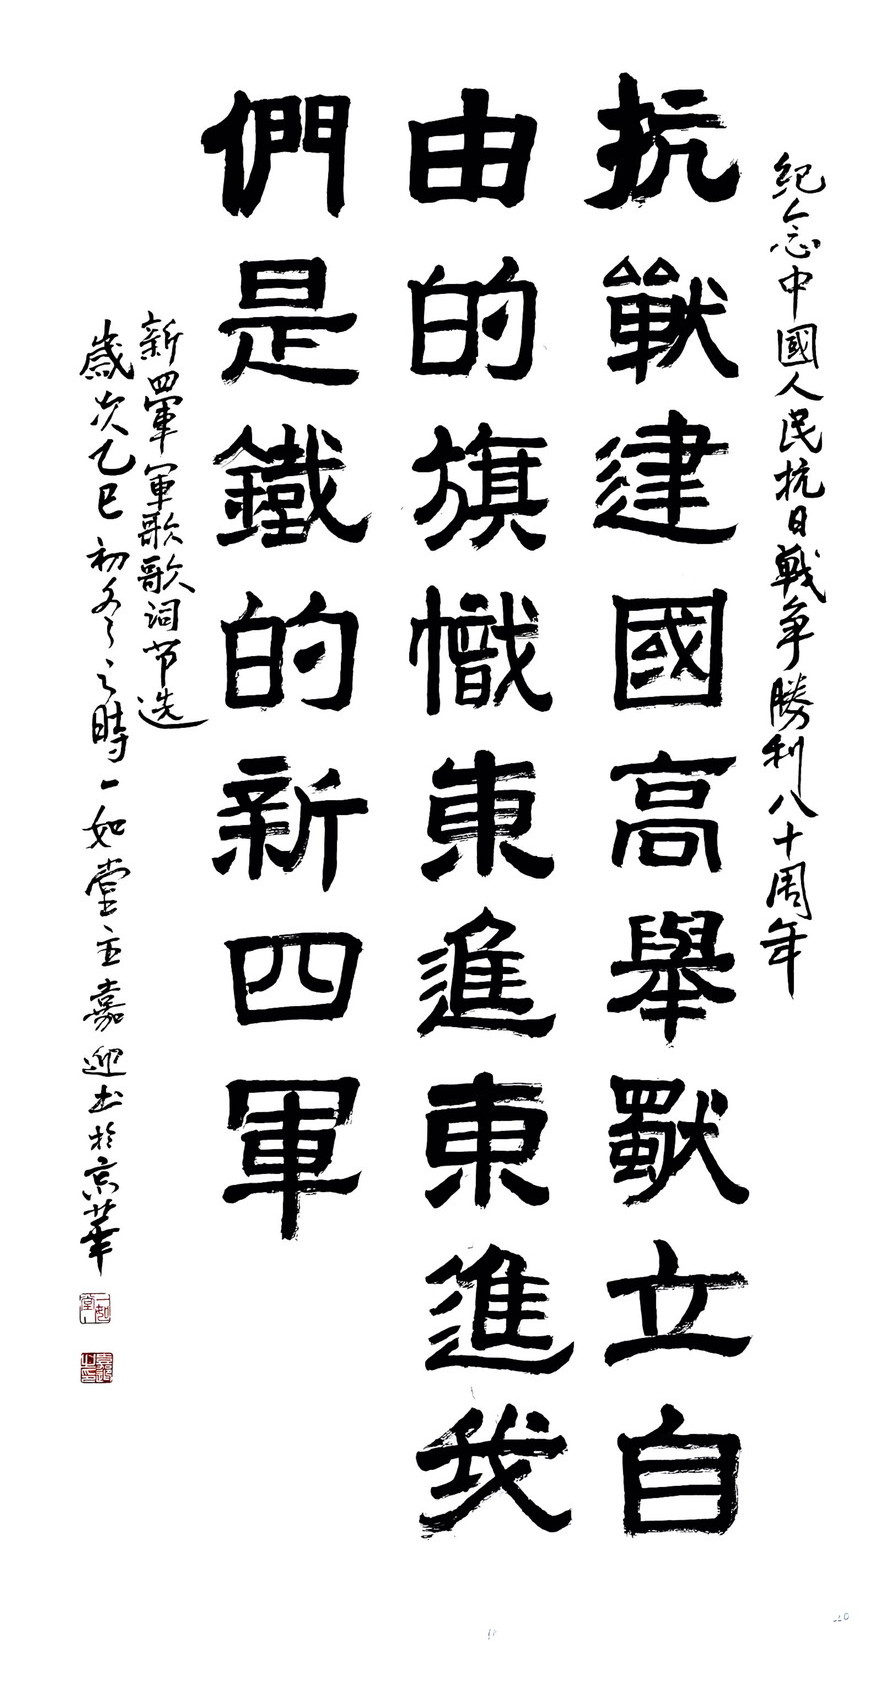 紀念中國人民抗日戰争勝利八十周年
抗戰建國高舉獨立自
由的旗幟東進東進我
們是鐵的新四軍
新四軍軍歌歌词节选
歲次乙巳初冬之時一如堂主嘉迎书於京華
一如堂